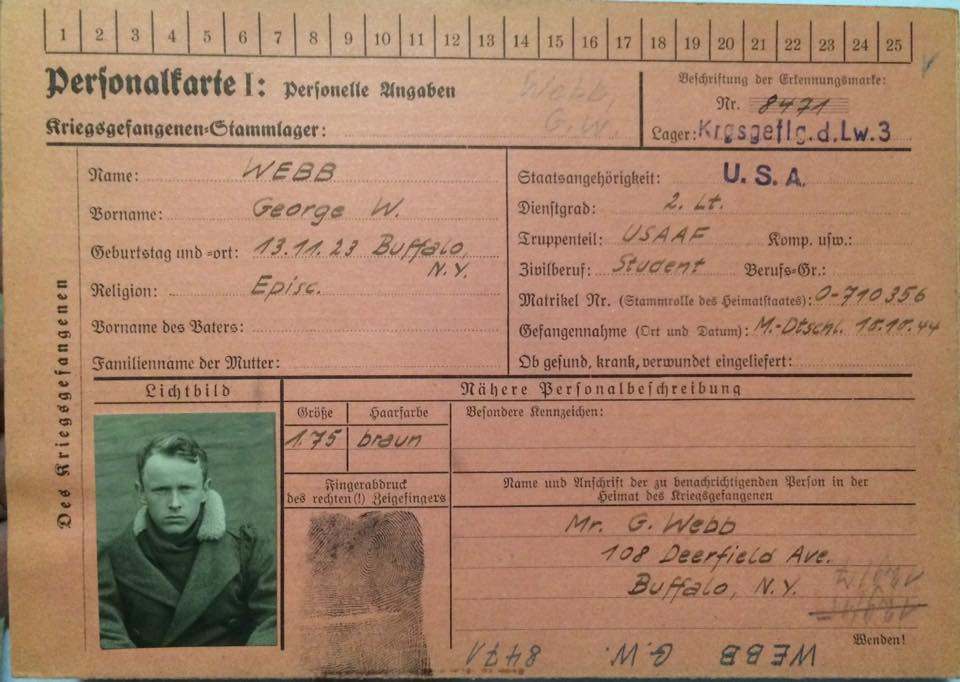 1 2 3 4 5 6 7 8 9 10 11 12 13 14 15 16 17 18 19 20 21 22 23 24 25
Personalkarte I: Personelle Angaben
Webb,
G.W.
Kriegsgefangenen-Stammlager:
Beschriftung der Erkennungsmarke:
Nr. 8471
Lager: Krgsgeflg.d.Lw.3
Des Kriegsgefangenen
Name: WEBB
Vorname: George W.
Geburtstag und -ort: 13.11.23 Buffalo,
N.Y.
Religion: Episc.
Vorname des Vaters:
Familienname der Mutter:
Staatsangehörigkeit: U.S.A.
Dienstgrad: 2. Lt.
Truppenteil: USAAF Komp. usw.:
Zivilberuf: Student Berufs-Gr.:
Matrikel Nr. (Stammrolle des Heimatstaates): O-710356
Gefangennahme (Ort und Datum): M.-Dtschl. 18.10.44
Ob gesund, krank, verwundet eingeliefert:
Lichtbild
Nähere Personalbeschreibung
Größe Haarfarbe
1.75 braun
Besondere Kennzeichen:
Fingerabdruck
des rechten(!) Zeigefingers
Name und Anschrift der zu benachrichtigenden Person in der
Heimat des Kriegsgefangenen
Mr. G. Webb
108 Deerfield Ave.
Buffalo, N.Y.
Wenden!
WEBB G.W. 8471